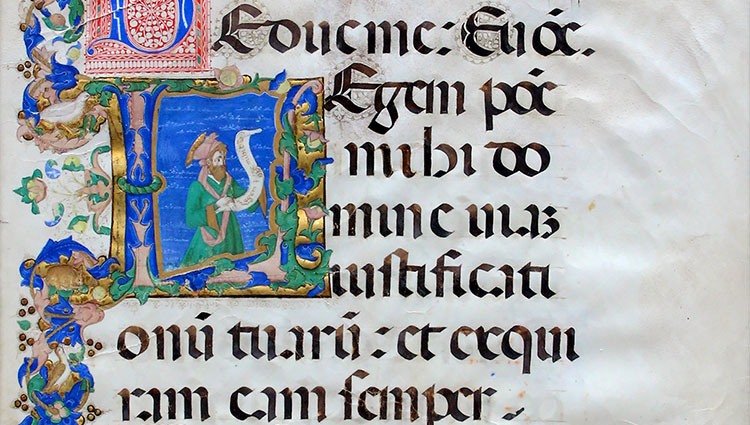 DEduc me: Euōe.
LEgem pōe
mihi do
mine uiaz
iustificati
onū tuarū: et exqui
ram eam semper.